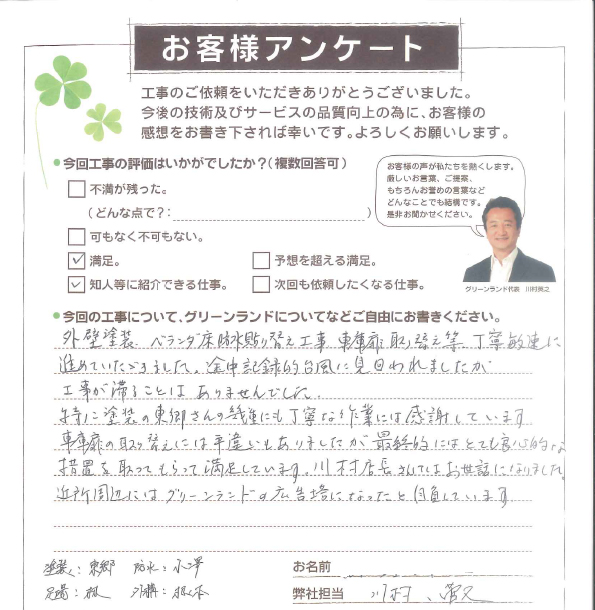 お客様アンケート
工事のご依頼をいただきありがとうございました。
今後の技術及びサービスの品質向上の為に、お客様の
感想をお書き下されば幸いです。よろしくお願いします。
今回工事の評価はいかがでしたか？（複数回答可）
不満が残った。
（どんな点で？： ）
可もなく不可もない。
✓ 満足。
予想を超える満足。
✓ 知人等に紹介できる仕事。
次回も依頼したくなる仕事。
お客様の声が私たちを熱くします。
厳しいお言葉、ご提案、
もちろんお誉めの言葉など
どんなことでも結構です。
是非お聞かせください。
グリーンランド代表 川村英之
今回の工事について、グリーンランドについてなどご自由にお書きください。
外壁塗装 ベランダ床防水貼り替え工事 車庫扉取り替え等 丁寧敏速に
進めていただきました。途中記録的台風に見回われましたが
工事が滞ることは ありませんでした。
特に塗装の東郷さんの幾重にも丁寧な作業には感謝しています
車庫扉の取り替えには手違いもありましたが 最終的にはとても良心的な
措置を取ってもらって満足しています。川村店長さんにはお世話になりました。
近所周辺にはグリーンランドの広告塔になったと自負しています
塗装：東郷 防水：小澤
足場：根 外構：根本
お名前
弊社担当 川村、